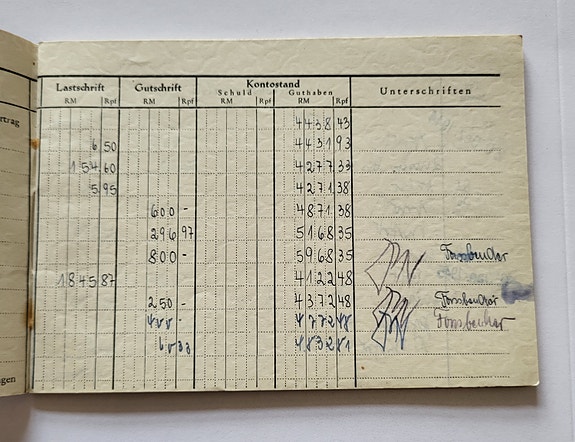 Lastschrift Gutschrift Kontostand Unterschriften
Schuld Guthaben
RM Rpf RM Rpf RM Rpf RM Rpf
4438 43
trag
6 50 4431 93
154 60 4277 33
5 95 4271 38
600 - 4871 38
296 97 5168 35
800 - 5968 35
1845 87 4122 48
250 - 4372 48
400 - 4772 48
60 33 4832 81
gen